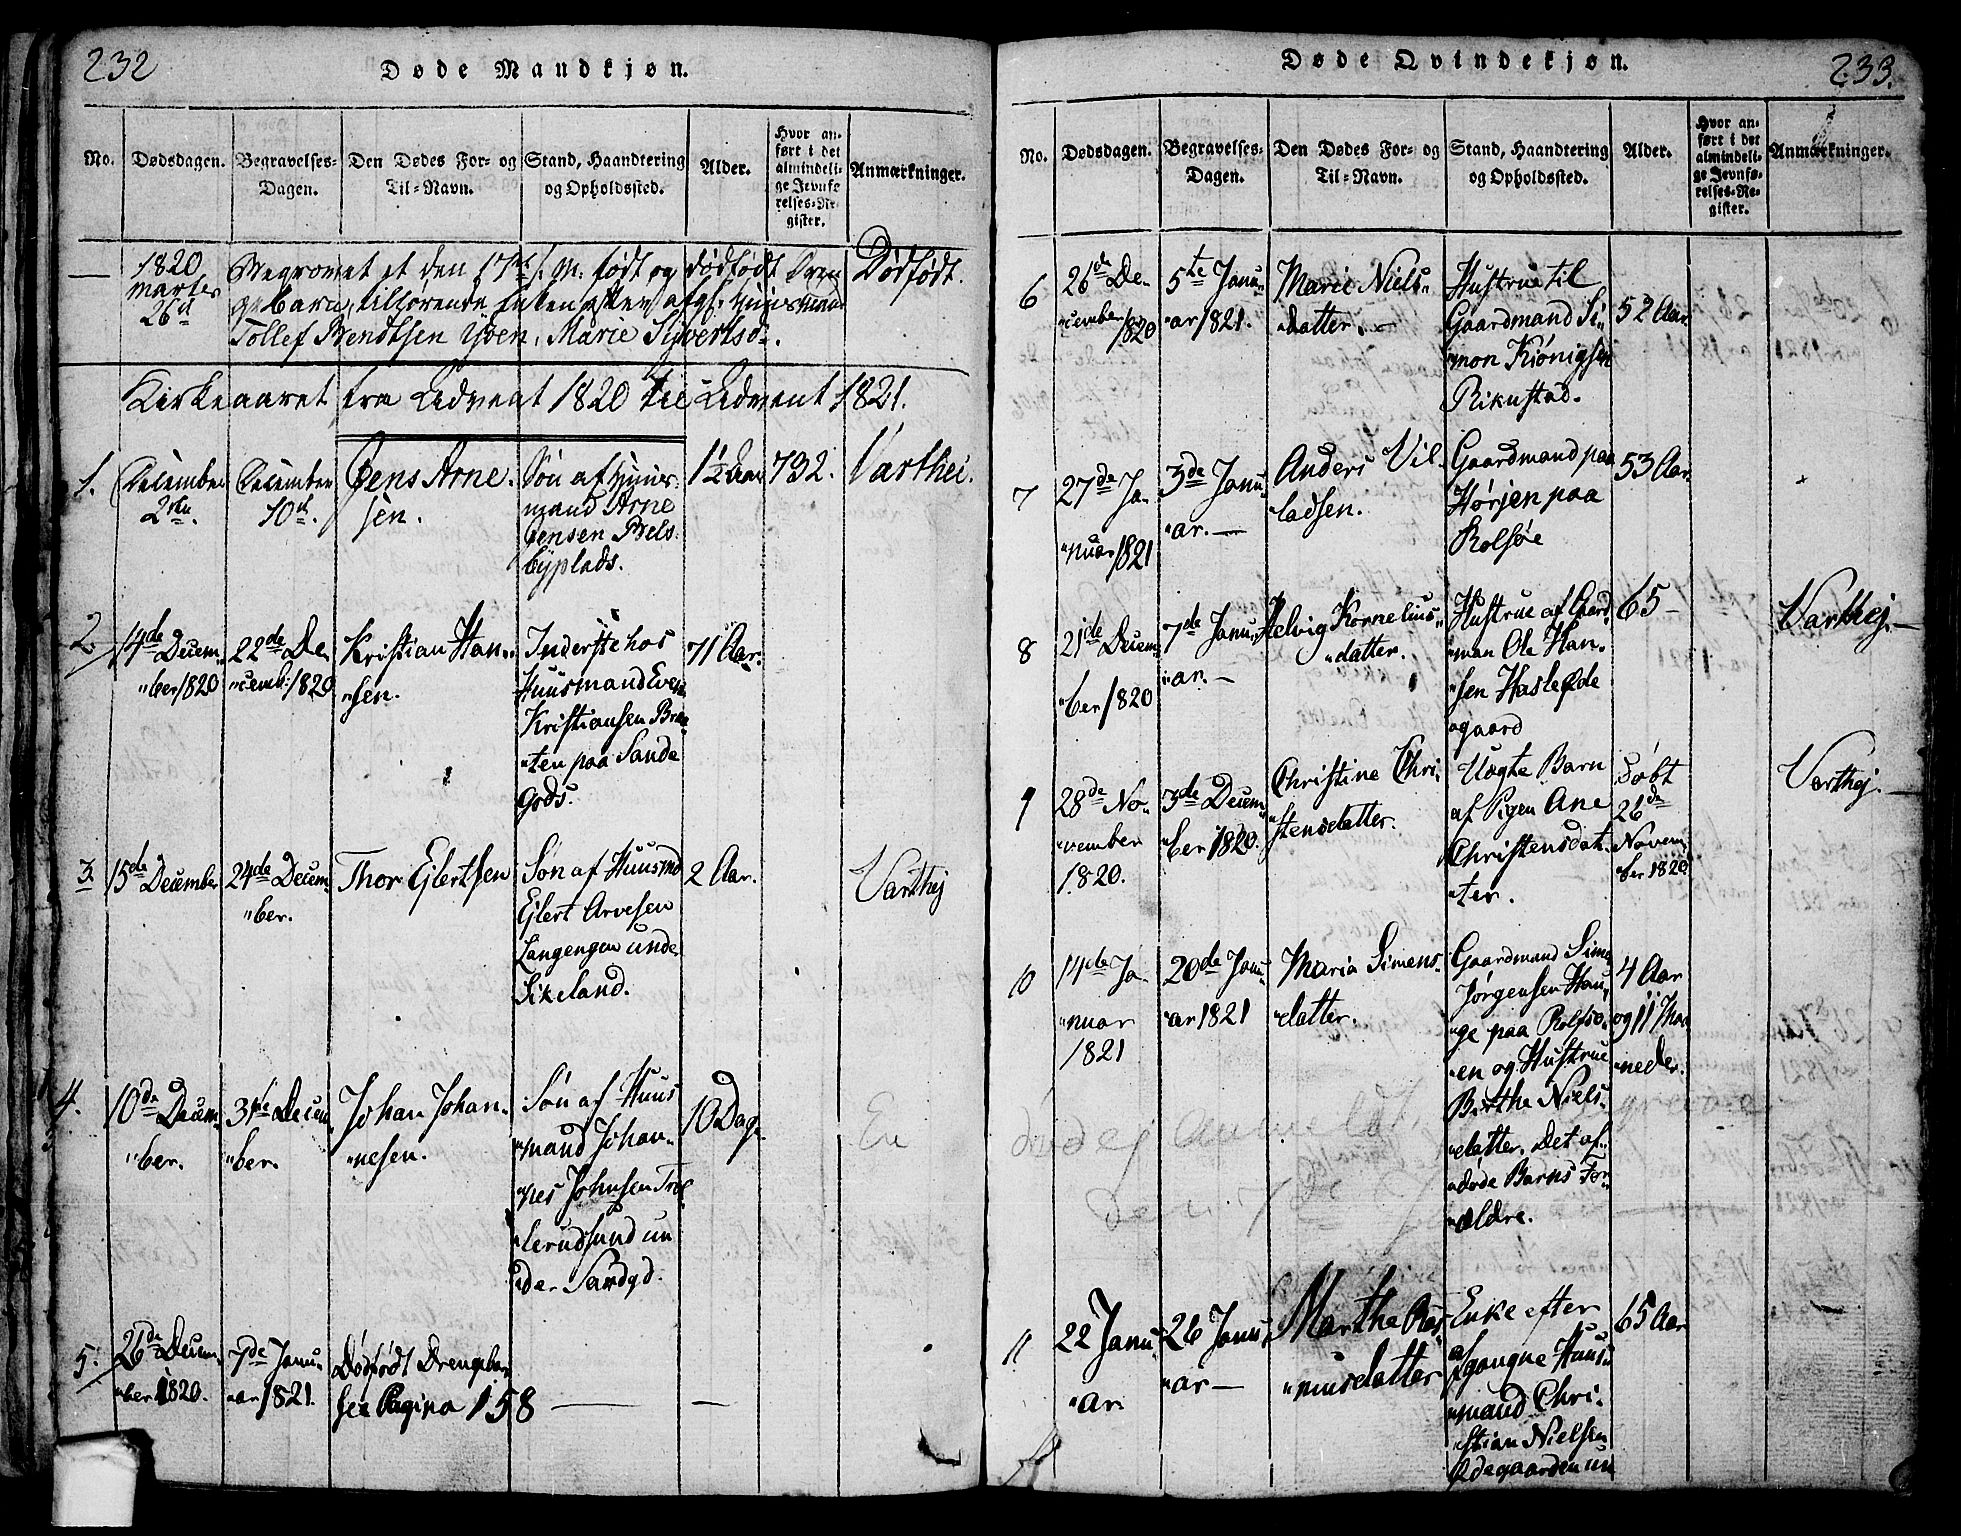 232
Døde Mandkjøn.
No.
Dødsdagen.
Begravelses-
Dagen.
Den Dødes For- og
Til-Navn.
Stand, Haandtering
og Opholdssted.
Alder.
Hvor an-
ført i det
almindeli-
ge Jevnfø-
relses-Re-
gister.
Anmærkninger.
1820
Martes
26d
født og dødfødt
Tollef Bendtsen Marie Syvertsd.
Dødfødt.
Kirkeaaret fra Advent 1820 til Advent 1821.
1.
December
2den.
December
10d.
Jens Arne-
sen.
Søn af Huus-
mand Arne
Jensen
byplads.
1½ Aar
732.
Varthei.
2
14de Decem-
ber 1820
22de De-
cemb: 1820
Kristian Han-
sen.
Inderste hos
Huusmand Even
Kristiansen Braa-
ten paa Sande
Gods.
71 Aar.
3.
15de December
24de Decem-
ber.
Thor Ejlertsen
Søn af Huusmd
Ejlert Arvesen
Langengen unde
Sikeland.
2 Aar.
Varthej
4.
10de Decem-
ber.
31te Decem-
ber.
Johan Johan-
nesen.
Søn af Huus
mand Johan-
nes Johnsen Trol
lerudsund un
der Sandgd.
10 Dag.
En
5.
26de Decem-
ber 1820.
7de Janu-
ar 1821.
Dødfødt Drengebar
see Pagina 158
233.
Døde Qvindekjøn.
No.
Dødsdagen.
Begravelses-
Dagen.
Den Dødes For- og
Til-Navn.
Stand, Haandtering
og Opholdssted.
Alder.
Hvor an-
ført i det
almindeli-
ge Jevnfø-
relses-Re-
gister.
Anmærkninger.
6
26de De-
cember 1820
5te Janu-
ar 1821.
Marie Niels-
datter.
Hustrue til
Gaardmand Si-
mon Kiönigsen
Rikustad.
52 Aar.
7
27de Ja-
nuar 1821
3de Janu-
ar.
Anders Vil-
ladsen.
Gaardmand paa
Hørjen paa
Rolsøe
53 Aar.
8
21de Decem-
ber 1820
7de Janu-
ar.
Helvig Kornelius-
datter.
Hustrue af Gaard
man Ole Han-
sen Hasle Øde
gaard
65
Varthej.
9
28de No-
vember
1820.
3de Decem-
ber 1820.
Christine Chri-
stensdatter.
Uægte Barn
af Pigen Ane
Christensdat-
ter.
Døbt
26de
Novem-
ber 1820
Varthej.
10
14de Ja-
nuar
1821
20de Janu-
ar 1821
Maria Simens-
datter.
Gaardmand Sime
Jørgensen Hau-
ge paa Rolfsø-
en og Hustrue
Birthe Niels-
datter. Det af-
døde Barns For-
ældre.
4 Aar
og 11 Maa
neder.
11
22 Janu-
ar
26 Janu-
ar
Marthe Ras-
musdatter
Enke efter
afgangne Huus-
mand Chri-
stian Nielsen
Ødegaarden un
65 Aar